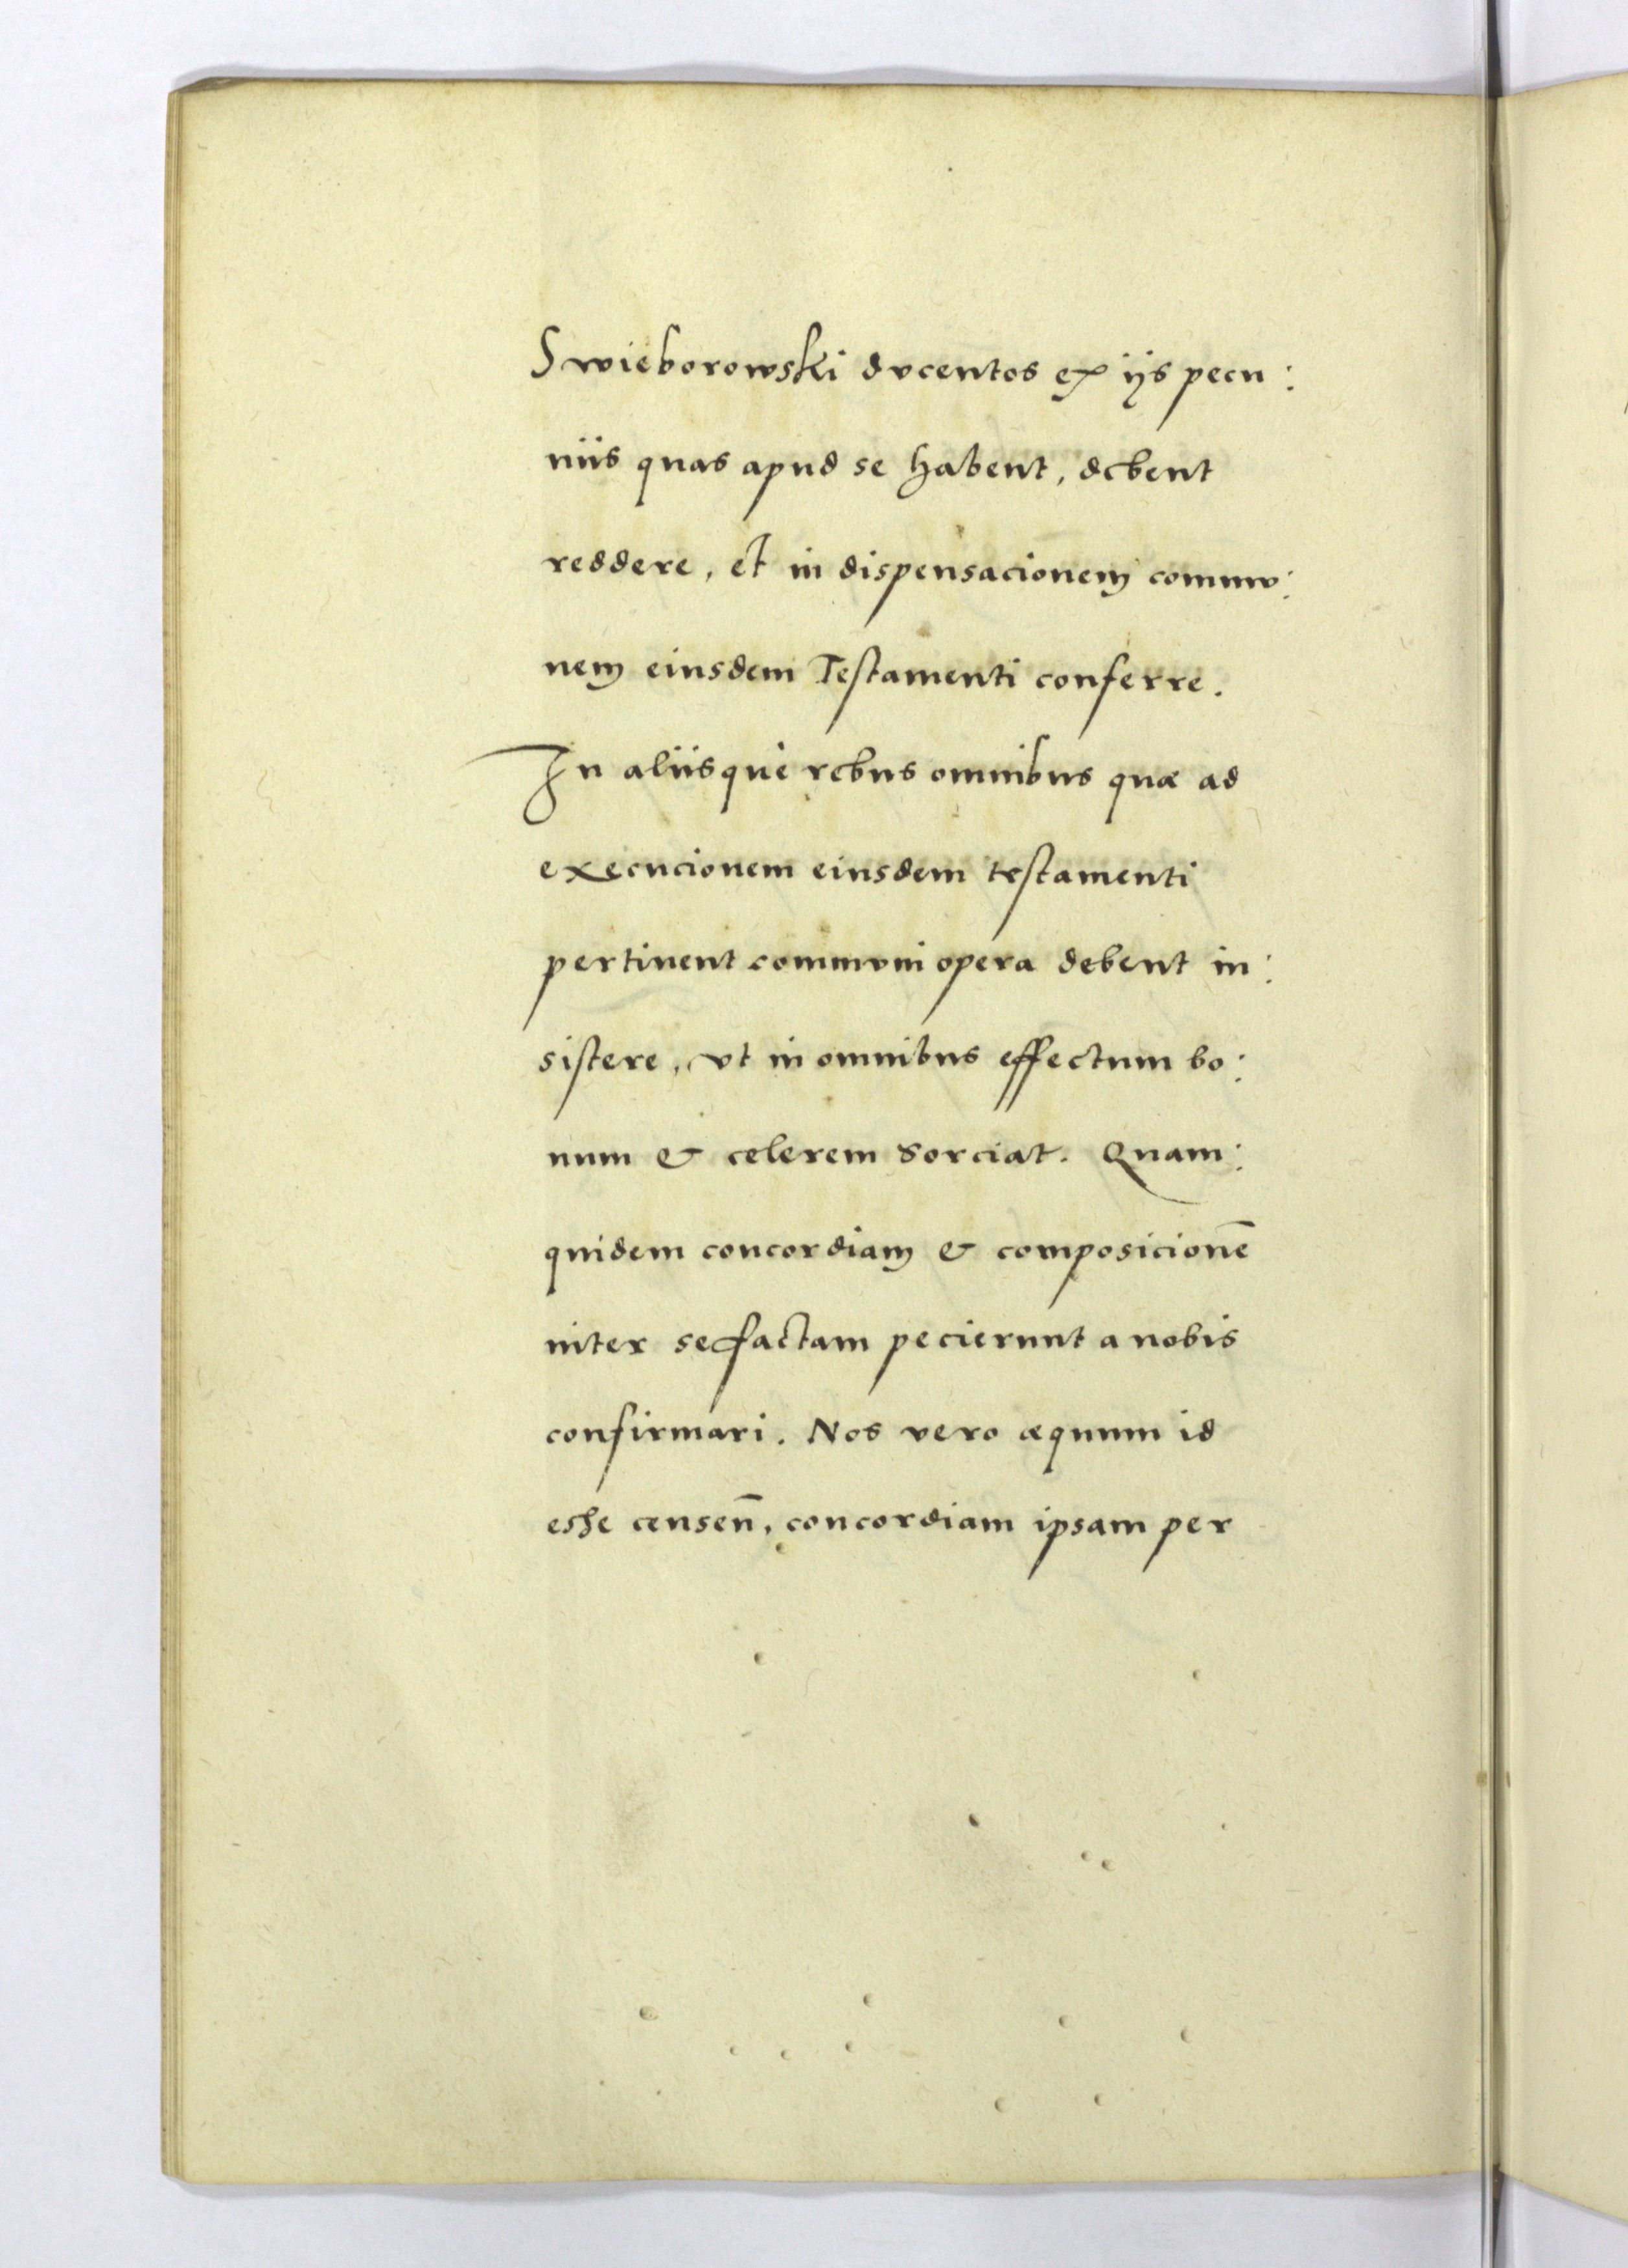 Swieborowski dvcentos ex ijs pecu:
niis quas apud se habent, debent
reddere, et in dispensacionem commv:
nem eiusdem Testamenti conferre.
In aliisquè rebus omnibus quæ ad
execucionem eiusdem testamenti
pertinent commvni opera debent in:
sistere, vt in omnibus effectum bo:
num & celerem sorciat. Quam:
quidem concordiam & composicionē
inter se factam pecierunt a nobis
confirmari. Nos vero æquum id
esse censen̄, concordiam ipsam per